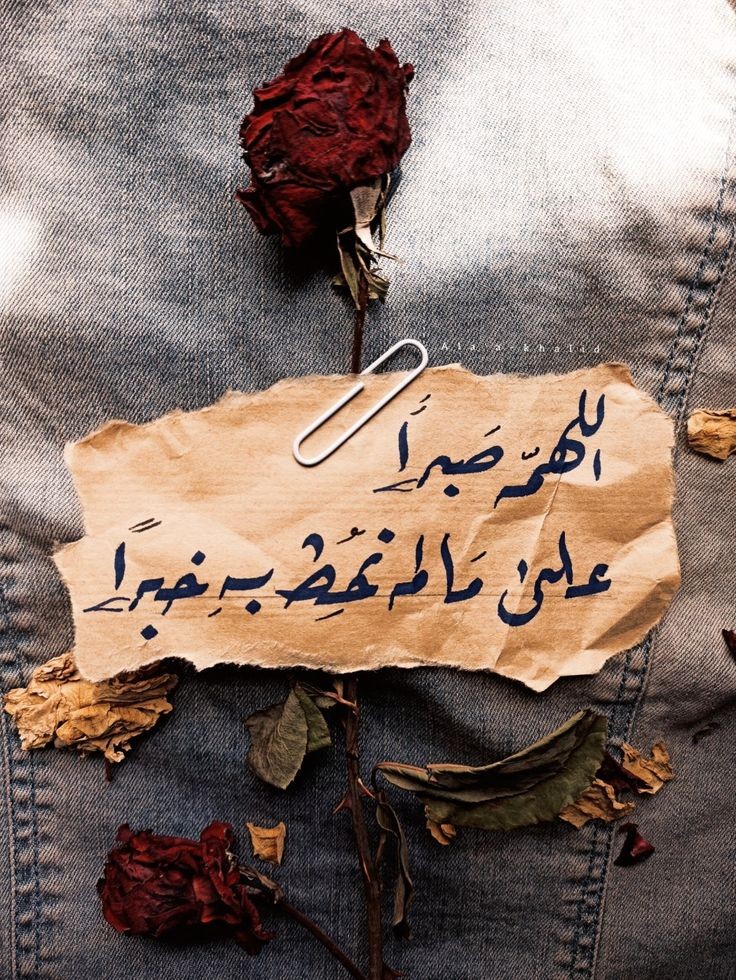 Ala a khalid
اللهمّ صَبراً
على مَا لم نُحِط بهِ خبراً